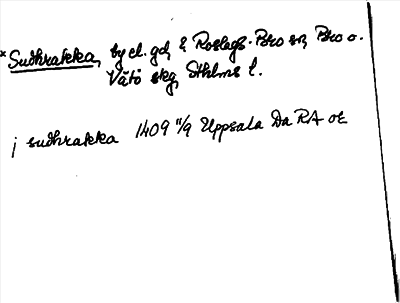 *Sudhrakka, by el. gd, i Roslags-Bro sn, Bro o.
Vätö skg, Sthlms l.
i sudhrakka 1409 11/9 Uppsala Da RA or